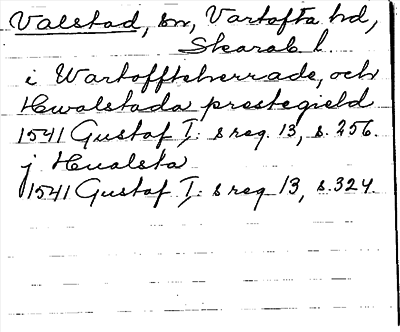 Valstad, sn, Vartofta hd,
Skarab. l.
i Wartoffteherrade, och
Hwalstada prestegield
1541 Gustaf I: s reg. 13, s. 256.
j Hualsta
1541 Gustaf I: s reg 13, s. 324.